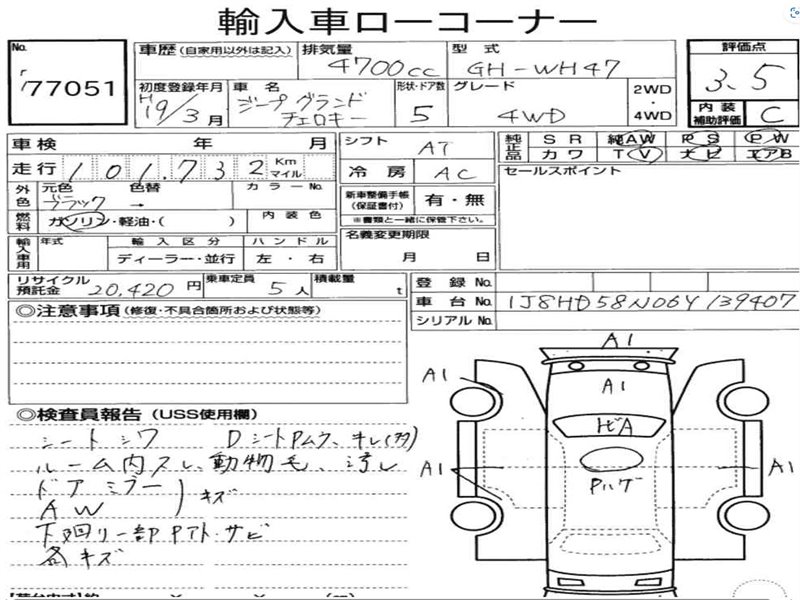 輸入車ローコーナー
No. 77051
車歴 (自家用以外は記入) 排気量 4700cc 型式 GH-WH47
評価点 3.5
内装補助評価 C
初度登録年月 H19/3月 車名 ジープグランドチェロキー 形状・ドア数 5 グレード 4WD 2WD・4WD
車検 年 月 シフト AT
純正品 SR 純AW PS PW
カワ TV ナビ エアB
走行 101,732 Km マイル 冷房 AC
セールスポイント
外色 元色 ブラック 色替 → カラーNo.
新車整備手帳(保証書付) 有・無
※書類と一緒に保管下さい。
燃料 ガソリン・軽油・( ) 内装色
名義変更期限 月 日
輸入車用 年式 輸入区分 ハンドル
ディーラー・並行 左・右
リサイクル預託金 20,420円 乗車定員 5人 積載量 t
登録No.
車台No. 1J8HD58N06Y139407
シリアルNo.
◎注意事項 (修復・不具合箇所および状態等)
◎検査員報告 (USS使用欄)
シートシワ Dシートアムケ、キレ(有)
ルーム内スレ、動物毛、汚レ
ドアミラー
AW
キズ
下廻リ一部Pアト・サビ
各キズ
A1
A1
A1
ヒビA
Pハゲ
A1
A1